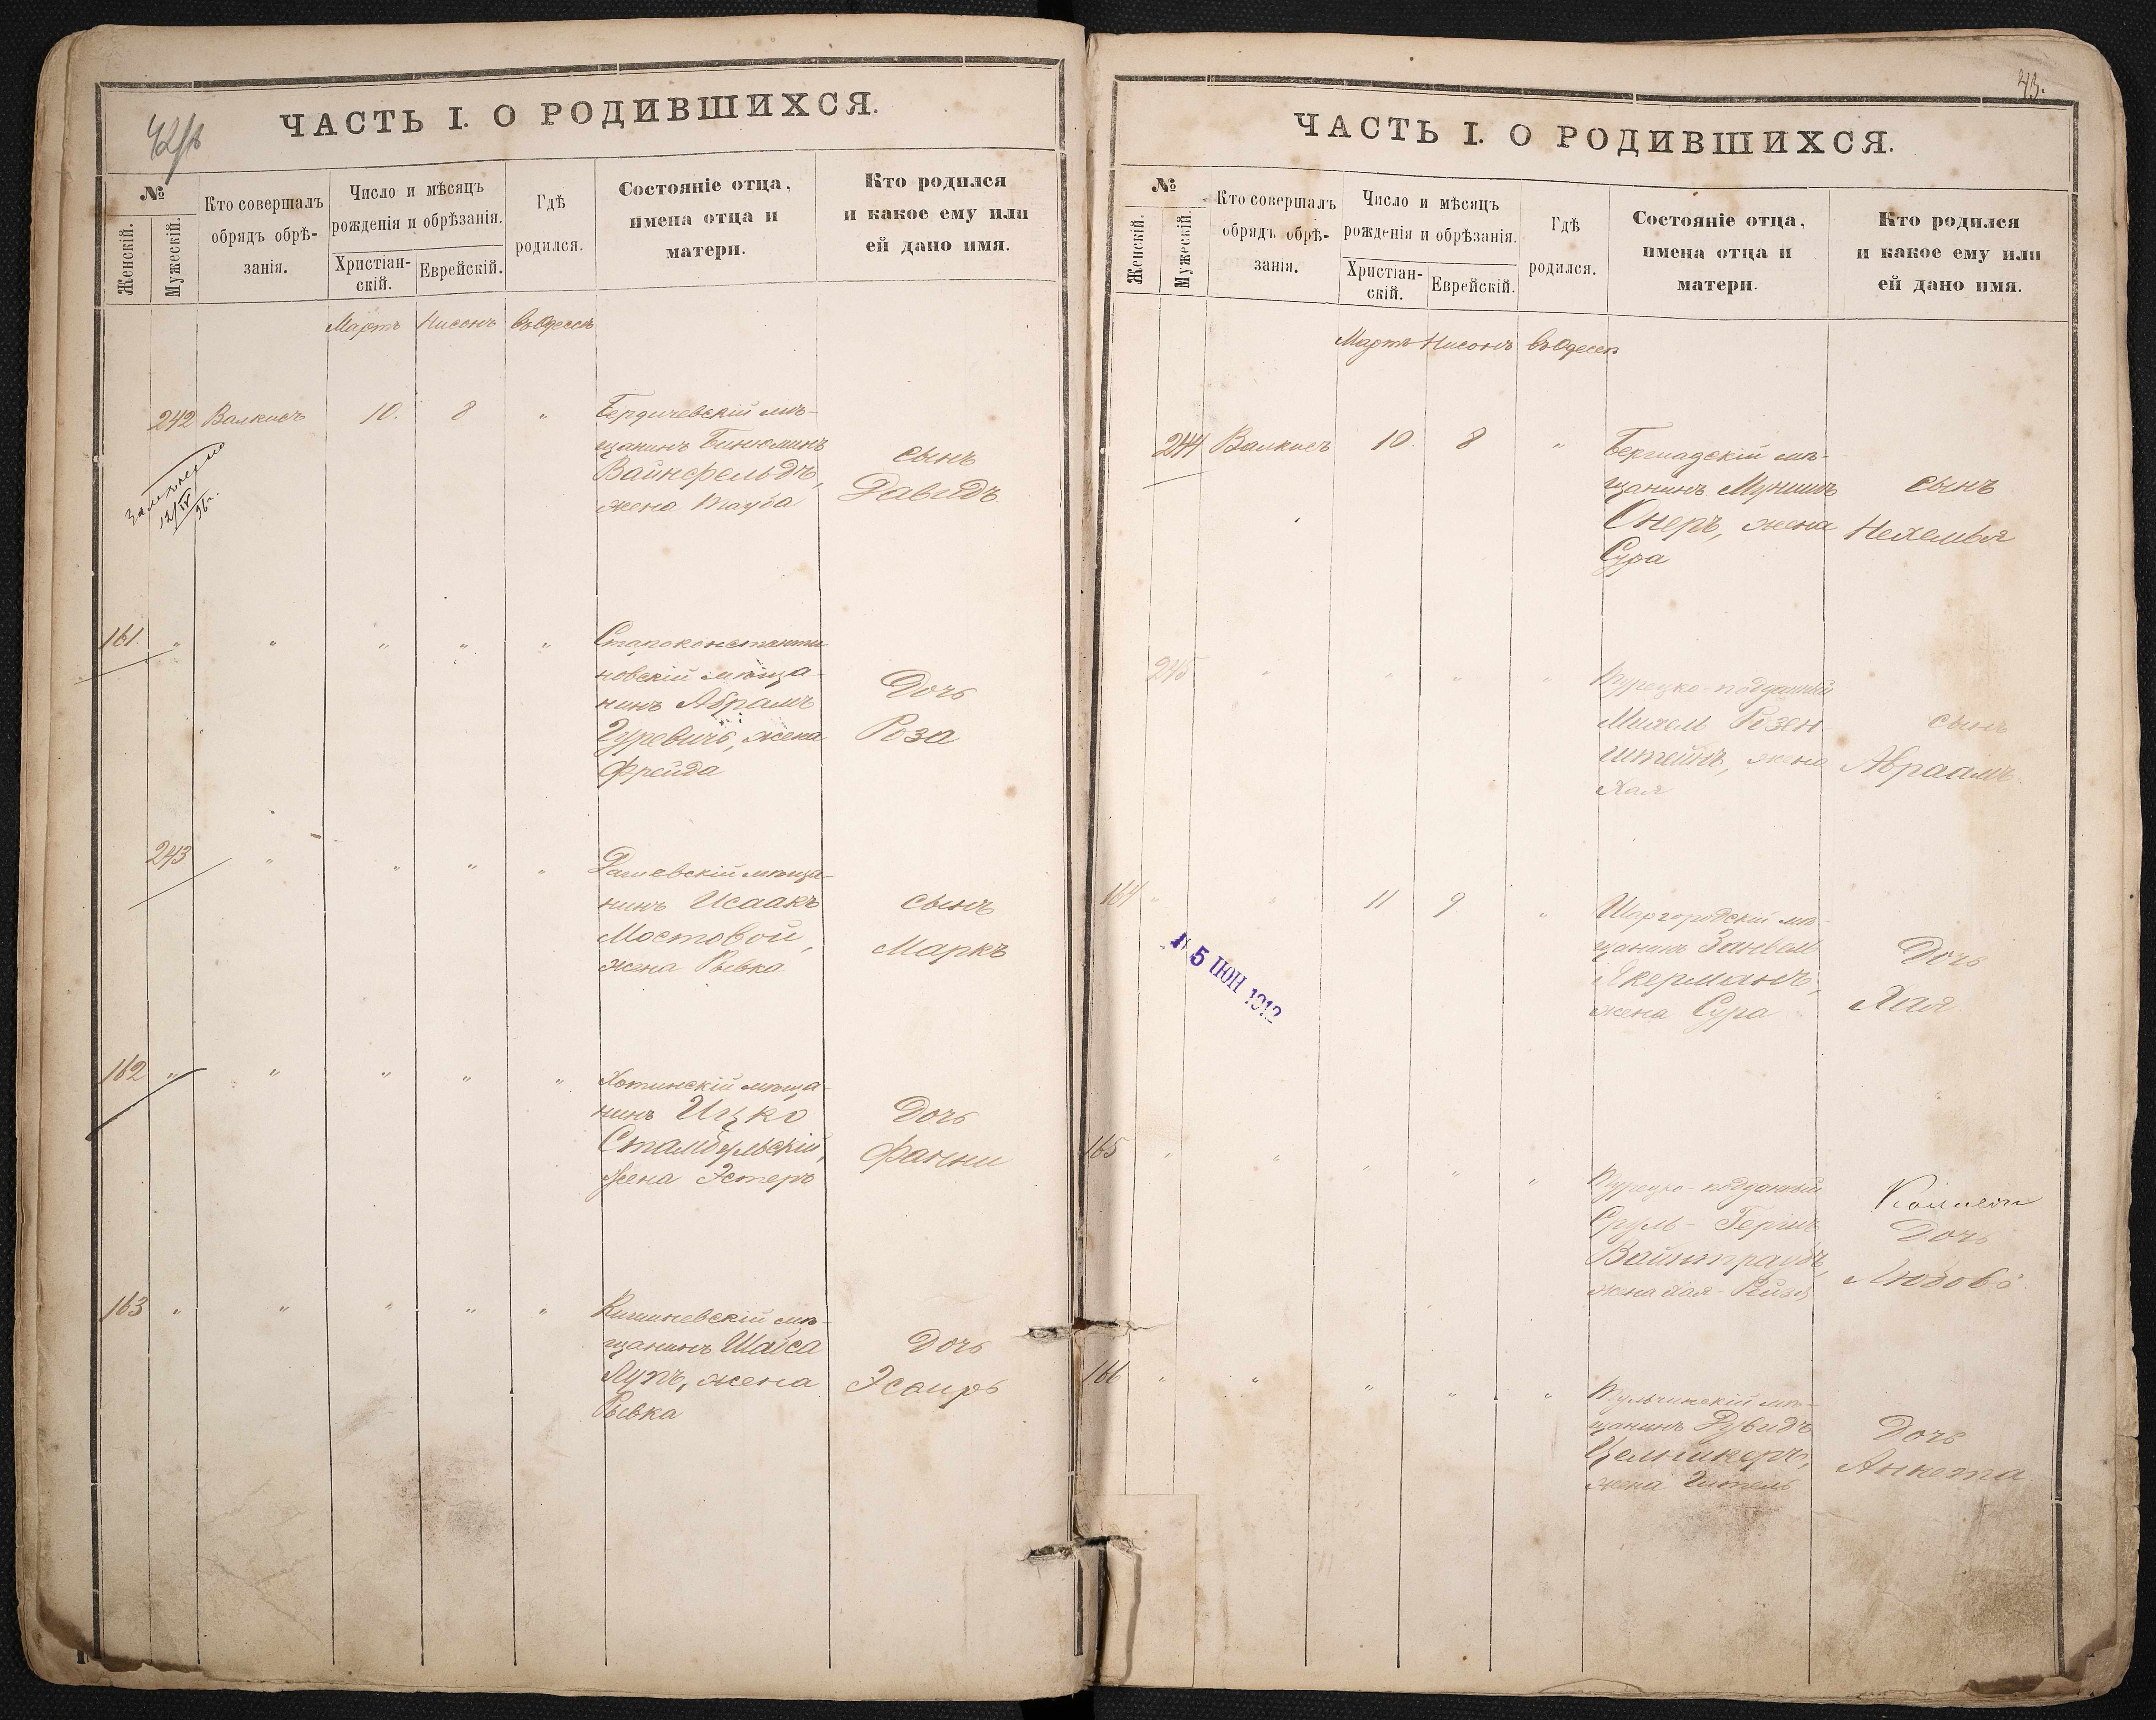 42/в
ЧАСТЬ I. О РОДИВШИХСЯ.
№
Женскій.
Мужескій.
Кто совершалъ
обрядъ обрѣ-
занія.
Число и мѣсяцъ
рожденія и обрѣзанія.
Христіан-
скій.
Еврейскій.
Гдѣ
родился.
Состояніе отца,
имена отца и
матери.
Кто родился
и какое ему или
ей дано имя.
Мартъ Нисонъ въ Одессѣ
242 Валкисъ 10. 8 "
Бердичевскій мѣ-
щанинъ Бинюминъ
Вайнфельдъ,
жена Тауба
сынъ
Давидъ
12/IV
96 г.
161. " " " " "
Староконстанти
новскій мѣща-
нинъ Абрамъ
Гуревичъ, жена
Фрейда
Дочь
Роза
243 " " " "
Рашевскій мѣща-
нинъ Исаакъ
Мостовой,
жена Рывка
сынъ
Маркъ
162 " " " " "
Хотинскій мѣща-
нинъ Ицко
Стамбульскій,
жена Эстеръ
Дочь
Фанни
163 " " " " "
Кишиневскій мѣ-
щанинъ Шайса
жена
Рывка
Дочь
Эсѳирь
43.
ЧАСТЬ I. О РОДИВШИХСЯ.
№
Женскій.
Мужескій.
Кто совершалъ
обрядъ обрѣ-
занія.
Число и мѣсяцъ
рожденія и обрѣзанія.
Христіан-
скій.
Еврейскій.
Гдѣ
родился.
Состояніе отца,
имена отца и
матери.
Кто родился
и какое ему или
ей дано имя.
Мартъ Нисонъ въ Одессѣ
244 Валкисъ 10. 8 "
Бершадскій мѣ-
щанинъ Мунишъ
Снеръ, жена
Сура
сынъ
Нехемья
245 " " " "
Турецко-подданный
Михель Розен
штейнъ, жена
Хая
сынъ
Авраамъ.
164 " " 11 9 "
Шаргородскій мѣ-
щанинъ Занвель
Акерманъ,
жена Сура
Дочь
Хая
5 ІЮН 1912
165 " " " " "
Турецко-подданный
Сруль-Гершъ
Вайнтраубъ,
жена Хая-Рейзя
Дочь
Любовь
166 " " " " "
Тульчинскій мѣ-
щанинъ Дувидъ
Цельникеръ,
жена Гитель
Дочь
Анкета